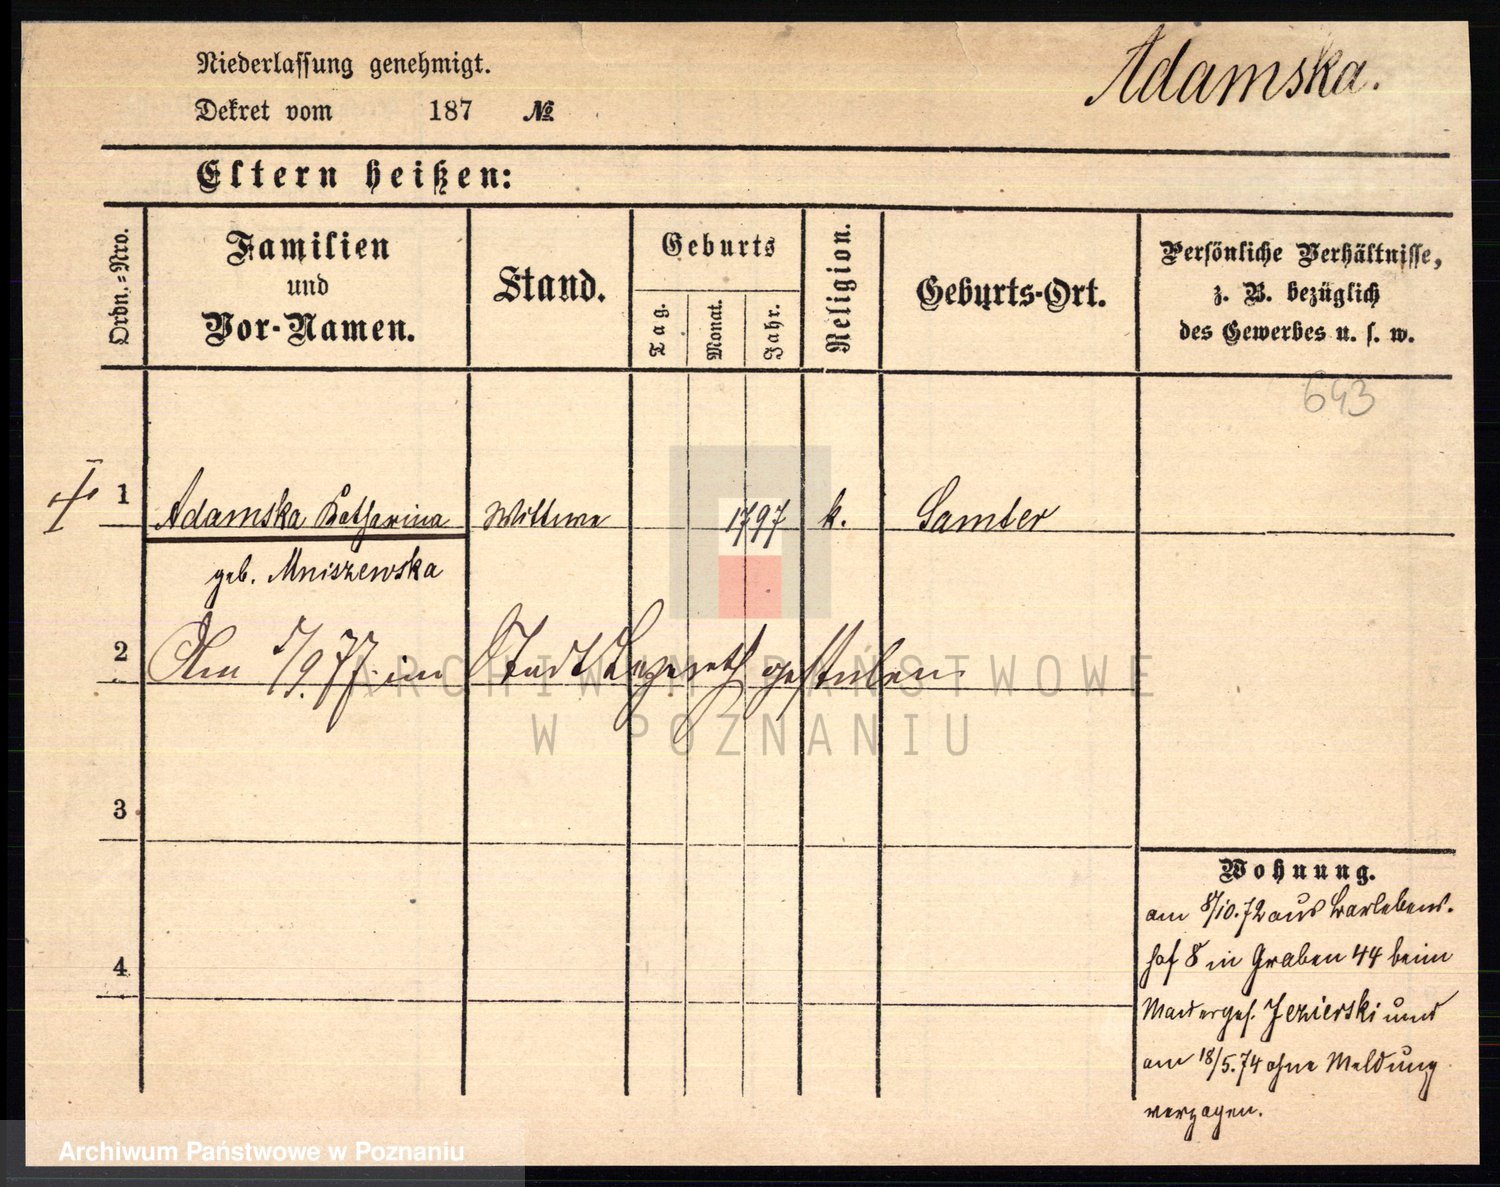 Niederlassung genehmigt.
Adamska.
Dekret vom 187 №
Eltern heißen:
Ordn.=Nro.
Familien
und
Vor-Namen.
Stand.
Geburts
Tag.
Monat.
Jahr.
Religion.
Geburts-Ort.
Persönliche Verhältnisse,
z. B. bezüglich
des Gewerbes u. s. w.
643
1 Adamska Katharina Wittwe 1797 k. Samter
geb. Mniszewska
2 Am 5/9.77. im Stadt Lazareth gestorben
3
4
Wohnung.
am 8/10.72 aus Barlebens-
hof 8 in Graben 44 beim
Jezierski und
am 18/5.74 ohne Meldung
verzogen.
ARCHIWUM PAŃSTWOWE
W POZNANIU
Archiwum Państwowe w Poznaniu